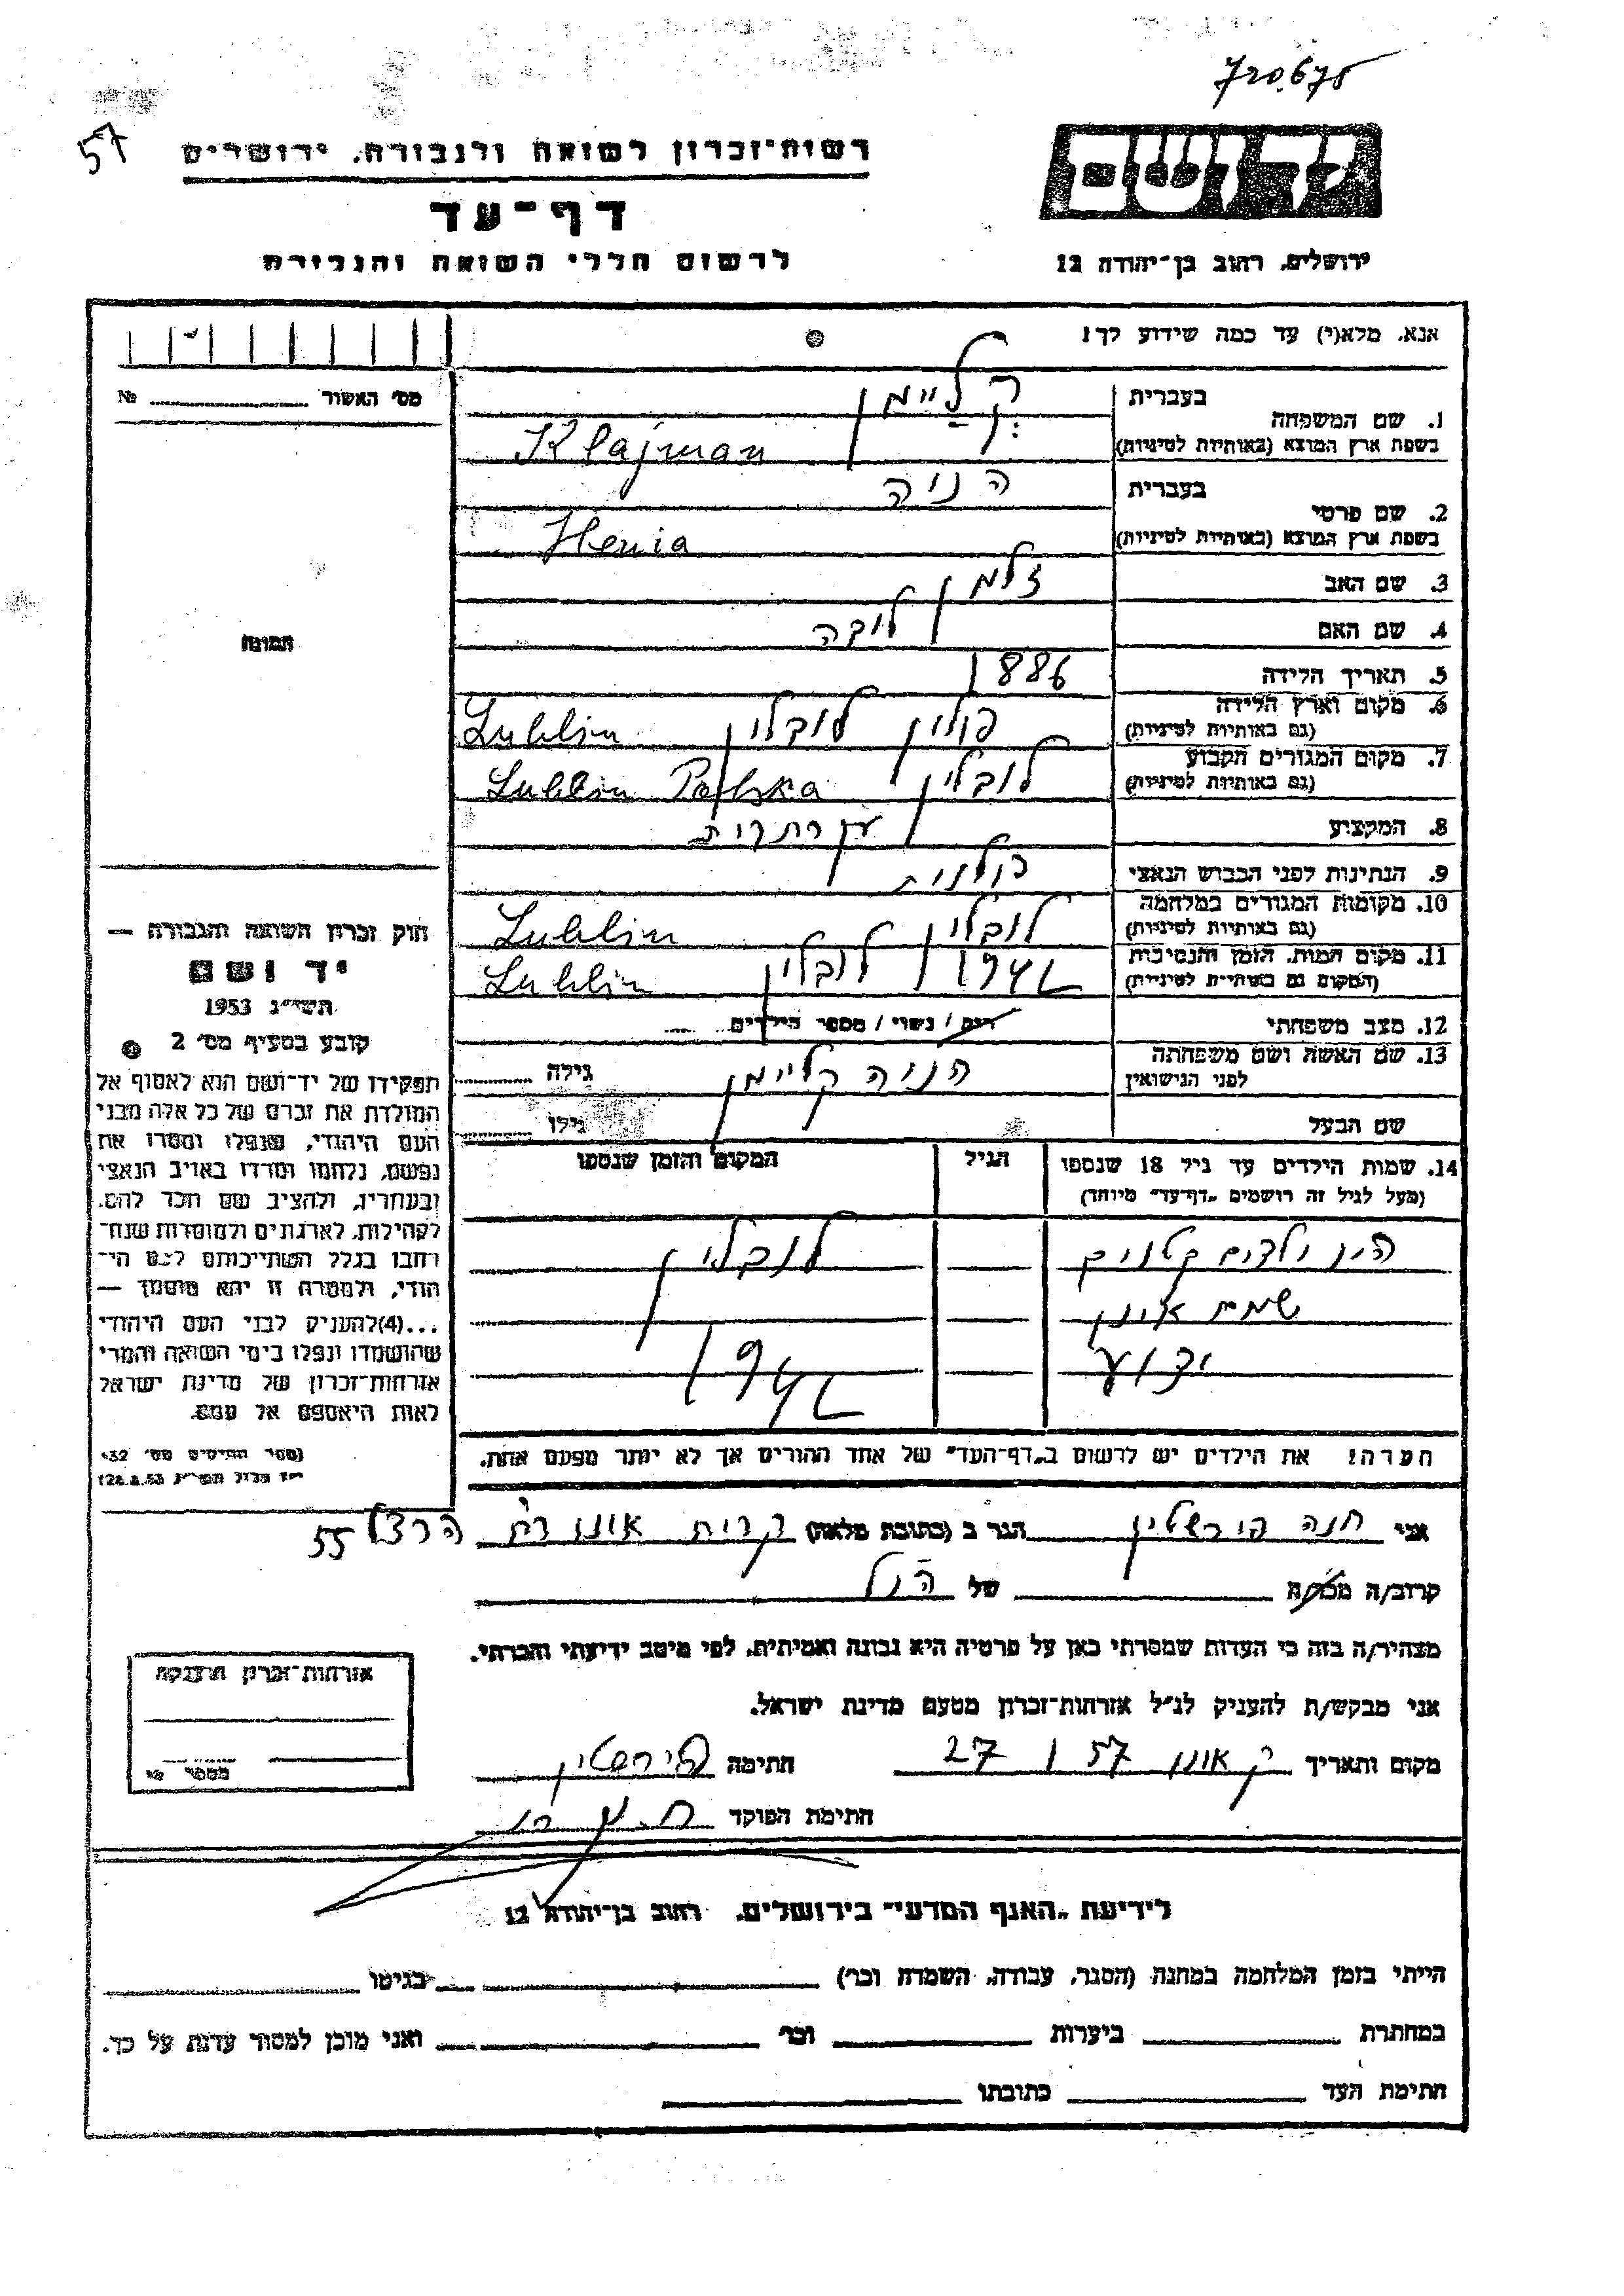 720675
57
רשות־זכרון לשואה ולגבורה, ירושלים
יד ושם
דף־עד
לרשום חללי השואה והגבורה
ירושלים, רחוב בן־יהודה 12
אנא, מלא(י) עד כמה שידוע לך!
מס׳ האשור № 
בעברית קליימן
1. שם המשפחה
בשפת ארץ המוצא (באותיות לטיניות) Klajman
בעברית הניה
2. שם פרטי
בשפת ארץ המוצא (באותיות לטיניות) Henia
3. שם האב זלמן
4. שם האם
תמונה
5. תאריך הלידה 1886
6. מקום וארץ הלידה פולין לובלין Lublin
(גם באותיות לטיניות)
7. מקום המגורים הקבוע לובלין Lublin Polska
(גם באותיות לטיניות)
8. המקצוע
9. הנתינות לפני הכבוש הנאצי פולנית
10. מקומות המגורים במלחמה לובלין Lublin
(גם באותיות לטיניות)
11. מקום המות, הזמן והנסיבות 1942 לובלין Lublin
(המקום גם באותיות לטיניות)
12. מצב משפחתי רוק / נשוי / מספר הילדים
13. שם האשה ושם משפחתה הניה קליימן גילה
לפני הנישואין
שם הבעל גילו
14. שמות הילדים עד גיל 18 שנספו הגיל המקום והזמן שנספו
(מעל לגיל זה רושמים „דף־עד״ מיוחד)
היו ילדים קטנים לובלין
שמות אינן
ידוע 1942
הערה: את הילדים יש לרשום ב„דף־העד״ של אחד ההורים אך לא יותר מפעם אחת.
חוק זכרון השואה והגבורה —
יד ושם
תשי״ג 1953
קובע בסעיף מס׳ 2
תפקידו של יד־ושם הוא לאסוף אל
המולדת את זכרם של כל אלה מבני
העם היהודי, שנפלו ומסרו את
נפשם, נלחמו ומרדו באויב הנאצי
ובעוזריו, ולהציב שם וזכר להם,
לקהילות, לארגונים ולמוסדות שנח־
רבו בגלל השתייכותם לעם הי־
הודי, ולמטרה זו יהא מוסמך —
...(4)להעניק לבני העם היהודי
שהושמדו ונפלו בימי השואה והמרי
אזרחות־זכרון של מדינת ישראל
לאות היאספם אל עמם.
(ספר החוקים מס׳ 132
אני חנה פירשטיין הגר ב (כתובת מלאה) קרית אונו רח׳ הרצל 55
קרוב/ה מכר/ה של הנ״ל
מצהיר/ה בזה כי העדות שמסרתי כאן על פרטיה היא נכונה ואמיתית, לפי מיטב ידיעתי והכרתי.
אני מבקש/ת להעניק לנ״ל אזרחות־זכרון מטעם מדינת ישראל.
מקום ותאריך ק. אונו 27 I 57 חתימה פירשטיין
חתימת הפוקד
אזרחות־זכרון הוענקה
מספר №
לידיעת „האגף המדעי״ בירושלים, רחוב בן־יהודה 12
הייתי בזמן המלחמה במחנה (הסגר, עבודה, השמדה וכו׳) בגיטו
במחתרת ביערות וכו׳ ואני מוכן למסור עדות על כך.
חתימת העד כתובתו